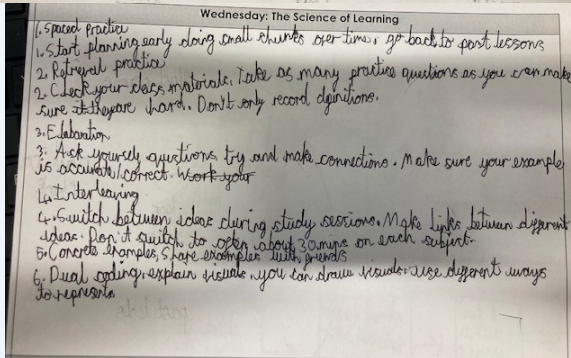 Wednesday: The Science of Learning
1. Spaced practice
1. Start planning early doing small chunks over time, go back to past lessons
2. Retreval practice
2. Check your class materials. Take as many practice questions as you can make
sure they are hard. Don't only record definitions.
3. Elaboration
3. Ask yourself questions try and make connections. Make sure your example
is accurate/correct. Work your
4. Interleaving
4. Switch between ideas during study sessions. Make links between different
ideas. Don't switch to often about 30 mins on each subject.
5. Concrete examples, share examples with friends
6. Dual coding, explain visuals, you can draw visuals. use different ways
to represent